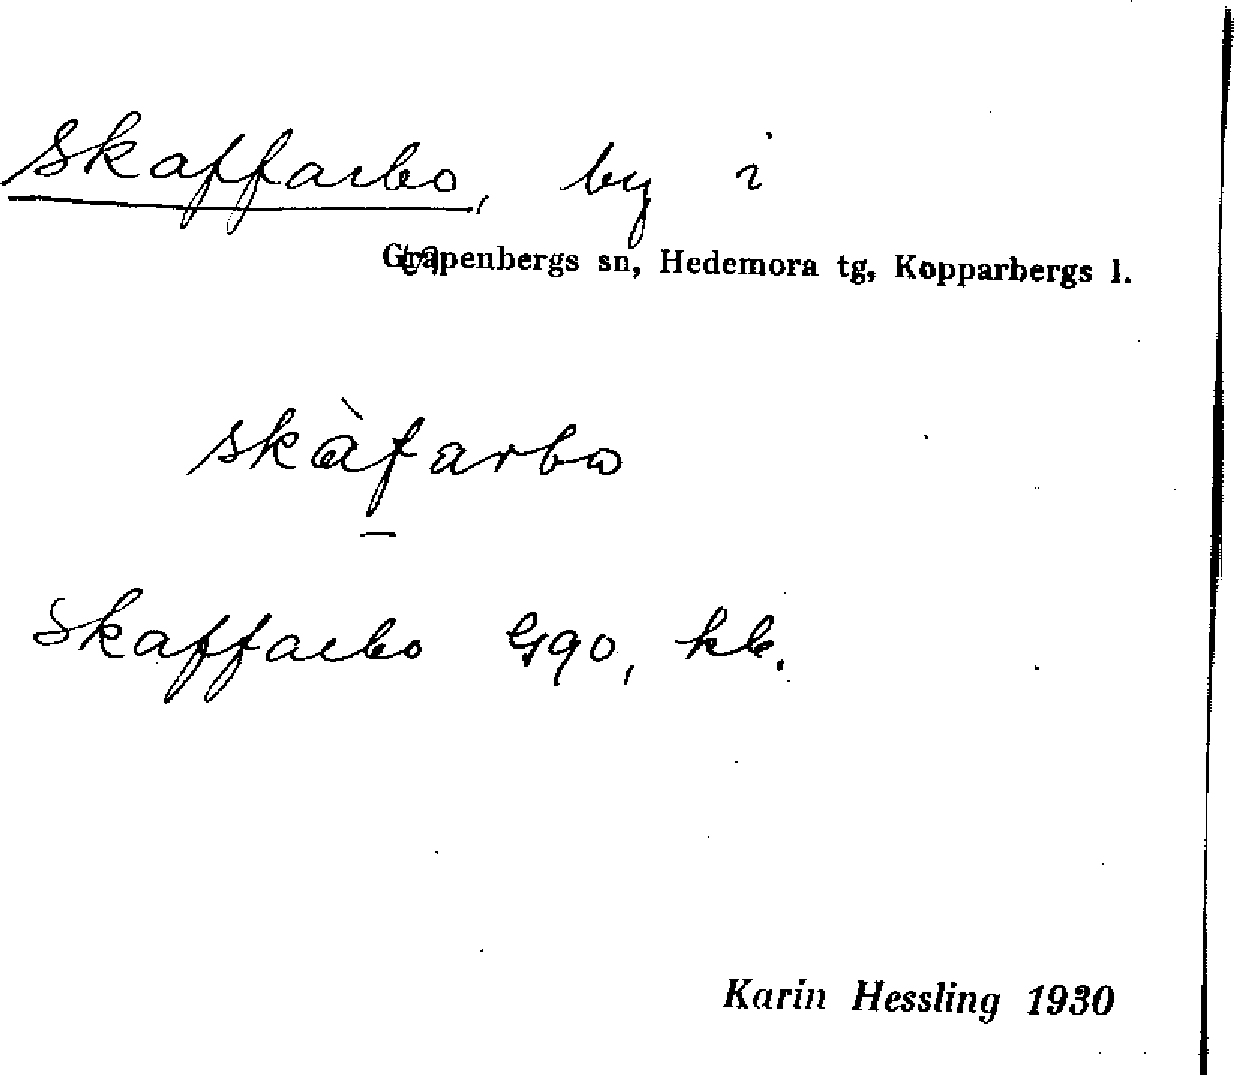 Skaffarbo, by i
Grapenbergs sn, Hedemora tg, Kopparbergs l.
skàfarbω
Skaffarbo Ggo, kb.
Karin Hessling 1930